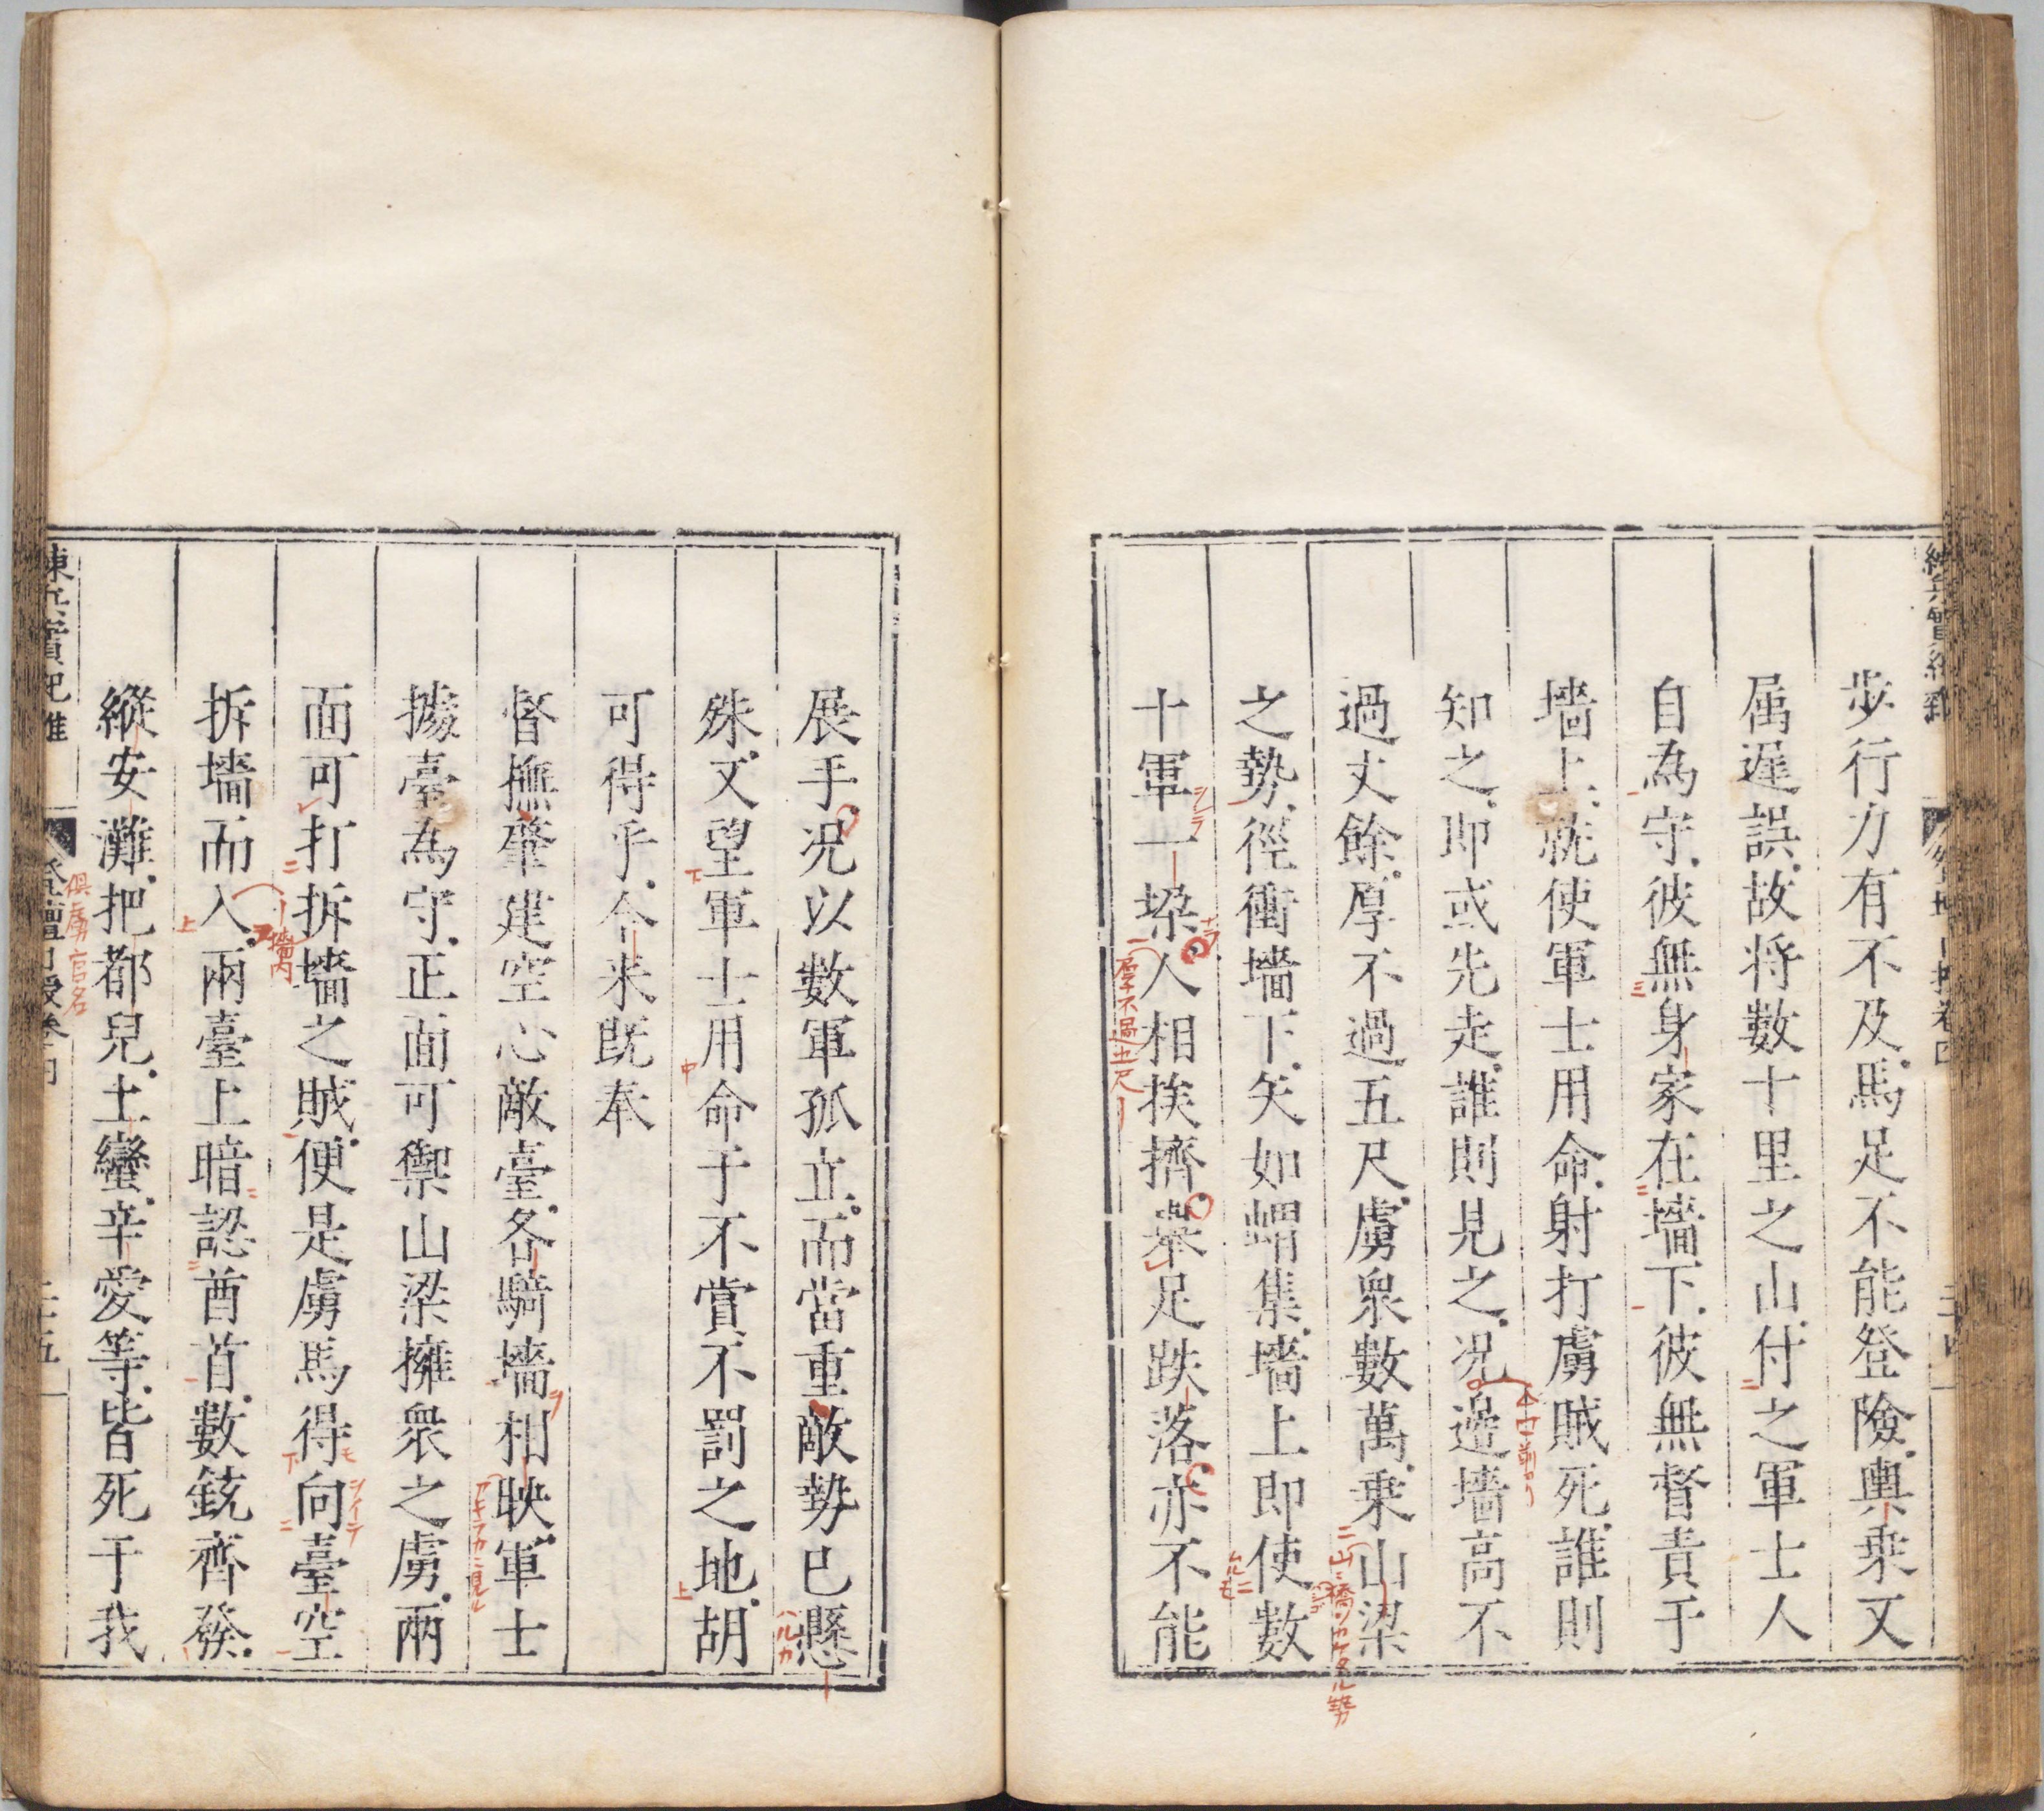 歩行力有不及馬足不能登險輿乗又
属遅誤故将數十里之山付之軍士人
自為守彼無身家在墻下彼無督責于
墻上就使軍士用命射打虜賊死誰則
知之即或先走誰則見之况邊墻高不
過丈餘厚不過五尺虜衆數萬乗山梁
之勢徑衝墻下矢如蝟集墻上即使數
十軍一垜人相挨擠舉足跌落亦不能
展手况以數軍孤立而當重敵勢已懸
殊又望軍士用命于不賞不罰之地胡
可得乎今来既奉
督撫肇建空心敵臺各騎墻相映軍士
據臺為守正面可禦山梁擁衆之虜兩
面可打拆墻之賊便是虜馬得向臺空
拆墻而入兩臺上暗認酋首數銃齊發
縱安灘把都兒土蠻辛愛等皆死于我
練兵實紀雜
登壇口授卷四
三十五
ハルカ
アキラカニ見ル
墻内
俱虜官名
厚不過五尺
山ニ橋ノカケタル勢